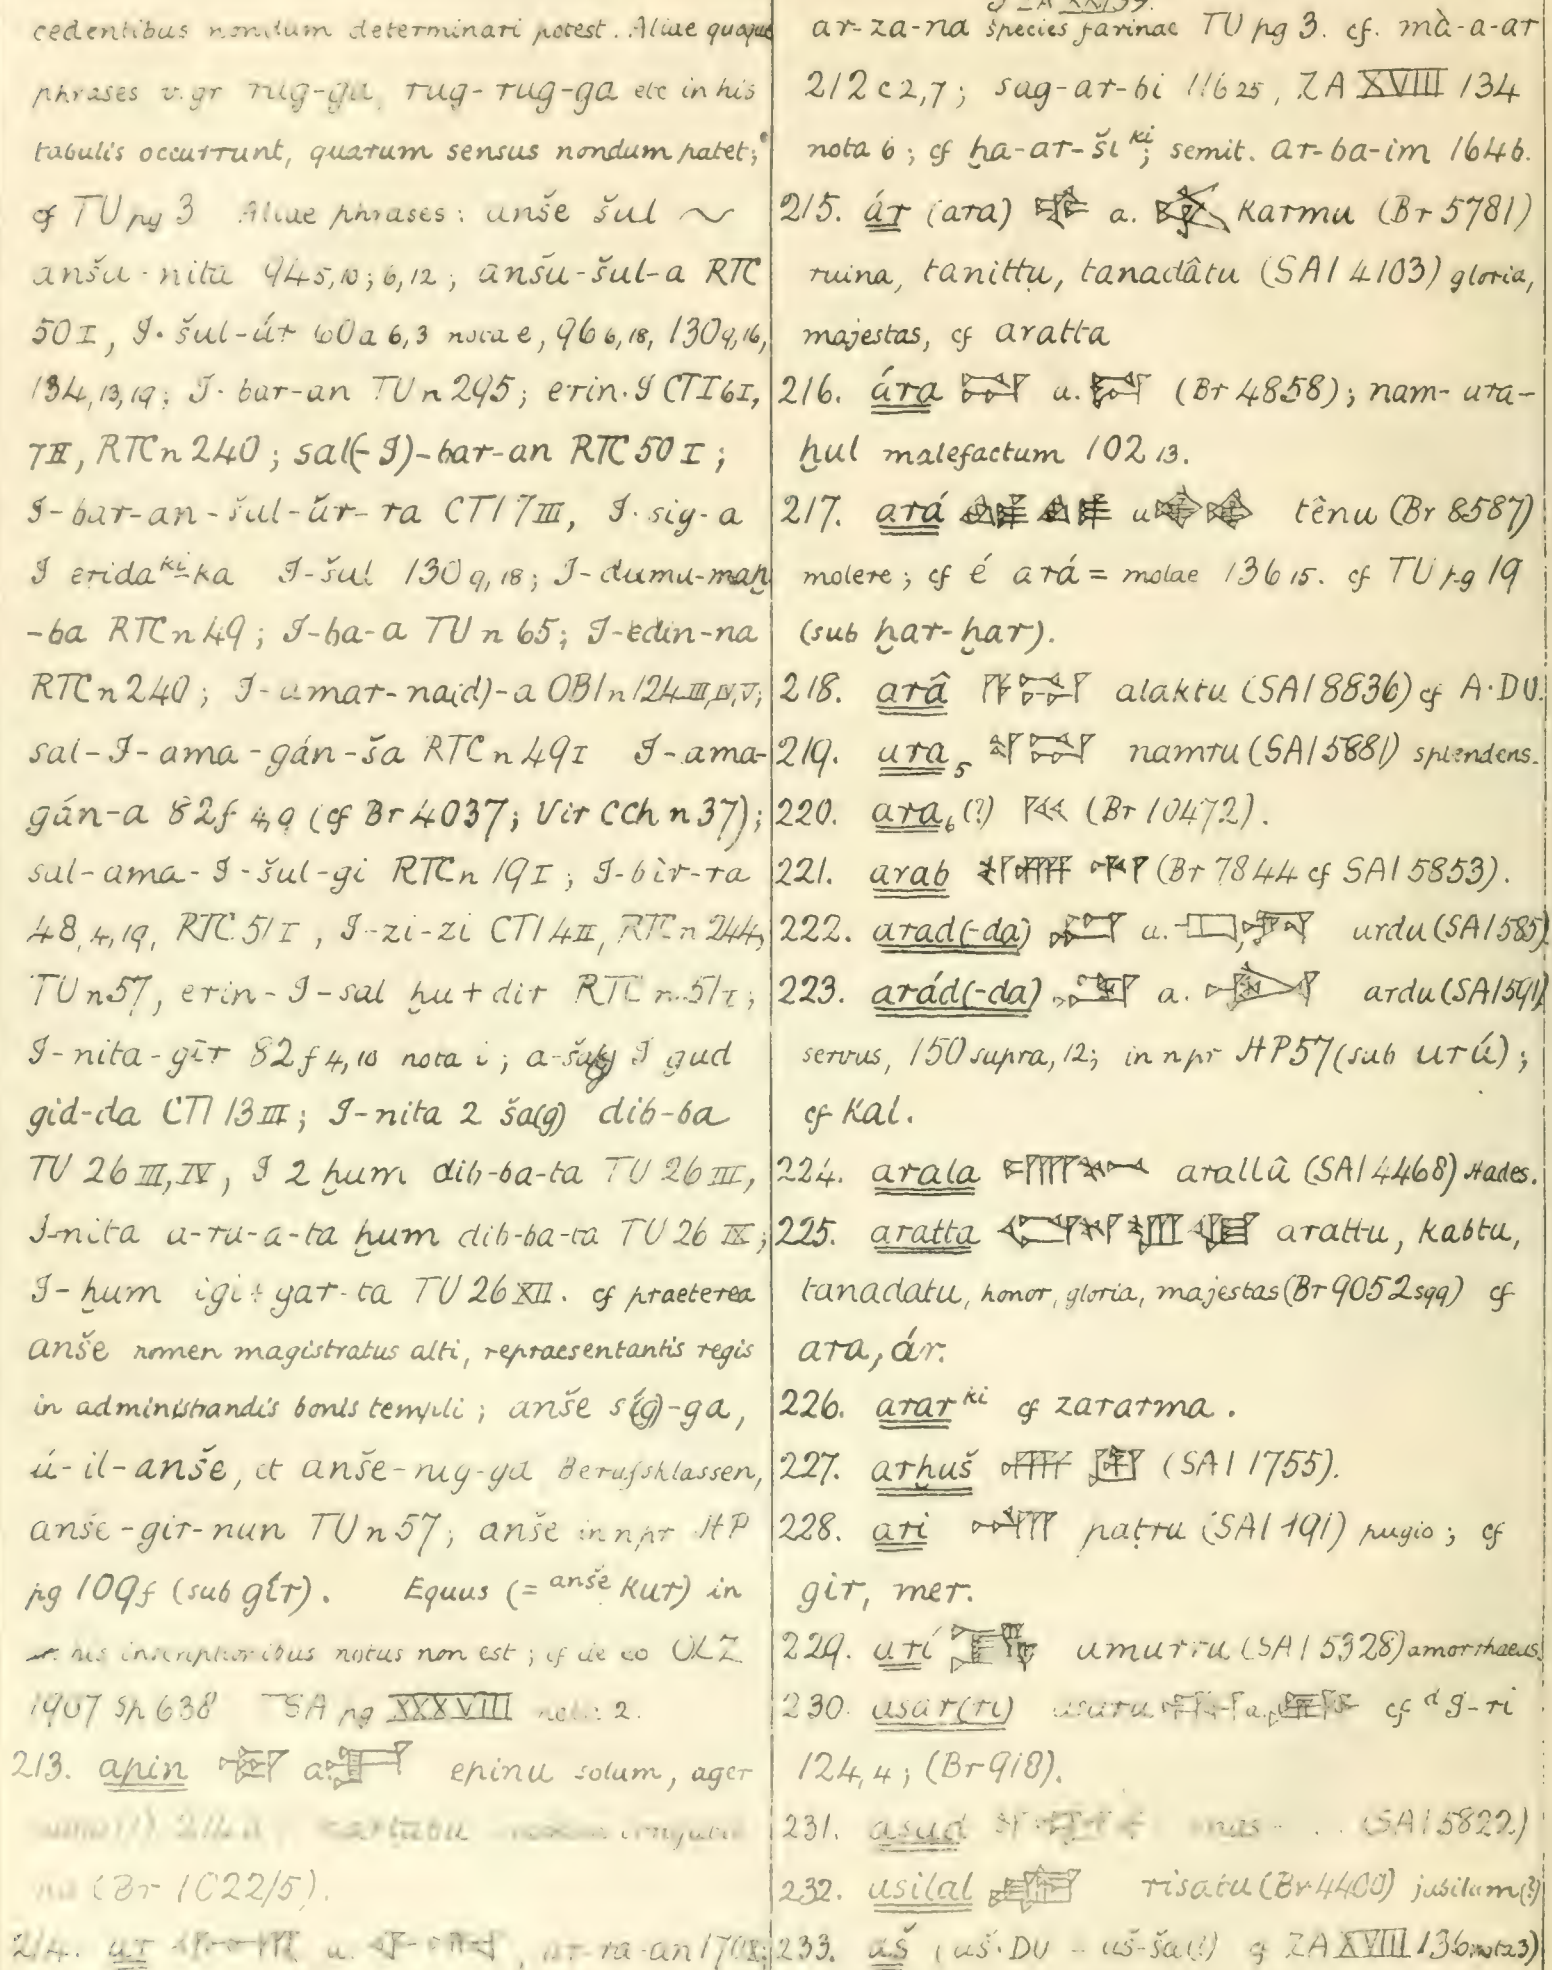 cedentibus nondum determinari potest. Aliae quoque
phrases v.gr rug-ga, rug-rug-ga etc in his
tabulis occurrunt, quarum sensus nondum patet;
cf TU pg 3 Aliae phrases: anše šul ~
anšu-nita 94 5,10; 6,12; anšu-šul-a RTC
50 I, I-šul-úr 60a 6,3 nota e, 96 6,18, 130 9,16,
134,13,19; I-bar-an TU n 295; erin-I CTI 6I,
7II, RTC n 240; sal(-I)-bar-an RTC 50 I;
I-bar-an-šul-ŭr-ra CTI 7III, I-sig-a
I erida ki-ka I-šul 130 9,18; I-dumu-maḫ
-ba RTC n 49; I-ba-a TU n 65; I-edin-na
RTC n 240; I-amar-na(d)-a OBI n 124 III, IV, V;
sal-I-ama-gán-ša RTC n 49I I-ama-
gán-a 82f 4,9 (cf Br 4037; Vir CCh n 37);
sal-ama-I-šul-gi RTC n 19I; I-bìr-ra
48,4,19, RTC 51I, I-zi-zi CTI 4II, RTC n 244,
TU n 57, erin-I-sal ḫu+dir RTC n 51I;
I-nita-gīr 82f 4,10 nota i; a-ša(g) I gud
gid-da CTI 13III; I-nita 2 ša(g) dib-ba
TU 26 III, IV, I 2 ḫum dib-ba-ta TU 26 III,
I-nita a-ru-a-ta ḫum dib-ba-ta TU 26 IX;
I-ḫum igi+gar-ta TU 26 XII. cf praeterea
anše nomen magistratus alti, repraesentantis regis
in administrandis bonis templi; anše síg-ga,
ú-il-anše, et anše-nig-ga Berufsklassen,
anše-gir-nun TU n 57; anše in npr HP
pg 109f (sub gír). Equus (= anše kur) in
his inscriptionibus notus non est; cf de eo OLZ
1907 Sp 638 TSA pg XXXVIII not. 2.
213. apin a. epinu solum, ager
(Br 1022/5).
214. ar a. , ar-ra-an 170
ar-za-na species farinae TU pg 3. cf. mà-a-ar
212 c 2,7; sag-ar-bi 116 25, ZA XVIII 134
nota 6; cf ḫa-ar-ši ki; semit. ar-ba-im 164b.
215. ár (ara) a. karmu (Br 5781)
ruina, tanittu, tanadâtu (SAI 4103) gloria,
majestas, cf aratta
216. ára a. (Br 4858); nam-ara-
ḫul malefactum 102 13.
217. ará a. tênu (Br 8587)
molere; cf é ará = molae 136 15. cf TU pg 19
(sub ḫar-ḫar).
218. arâ alaktu (SAI 8836) cf A·DU.
219. ara5 namru (SAI 5881) splendens.
220. ara6 (?) (Br 10472).
221. arab (Br 7844 cf SAI 5853).
222. arad(-da) a. urdu (SAI 585)
223. arád(-da) a. ardu (SAI 591)
servus, 150 supra, 12; in npr HP 57 (sub urú);
cf kal.
224. arala arallû (SAI 4468) Hades.
225. aratta arattu, kabtu,
tanadatu, honor, gloria, majestas (Br 9052 sqq) cf
ara, ár.
226. arar ki cf zararma.
227. arḫuš (SAI 1755).
228. ari paṭru (SAI 191) pugio; cf
gir, mer.
229. arí amurru (SAI 5328) amorrhaeus.
230. asar(ri) asaru a. cf d I-ri
124,4; (Br 918).
231. asud (SAI 5822)
232. asilal risatu (Br 4400) jubilum (?)
233. aš (aš·DU aš-ša(?)) cf ZA XVIII 136 nota 3)